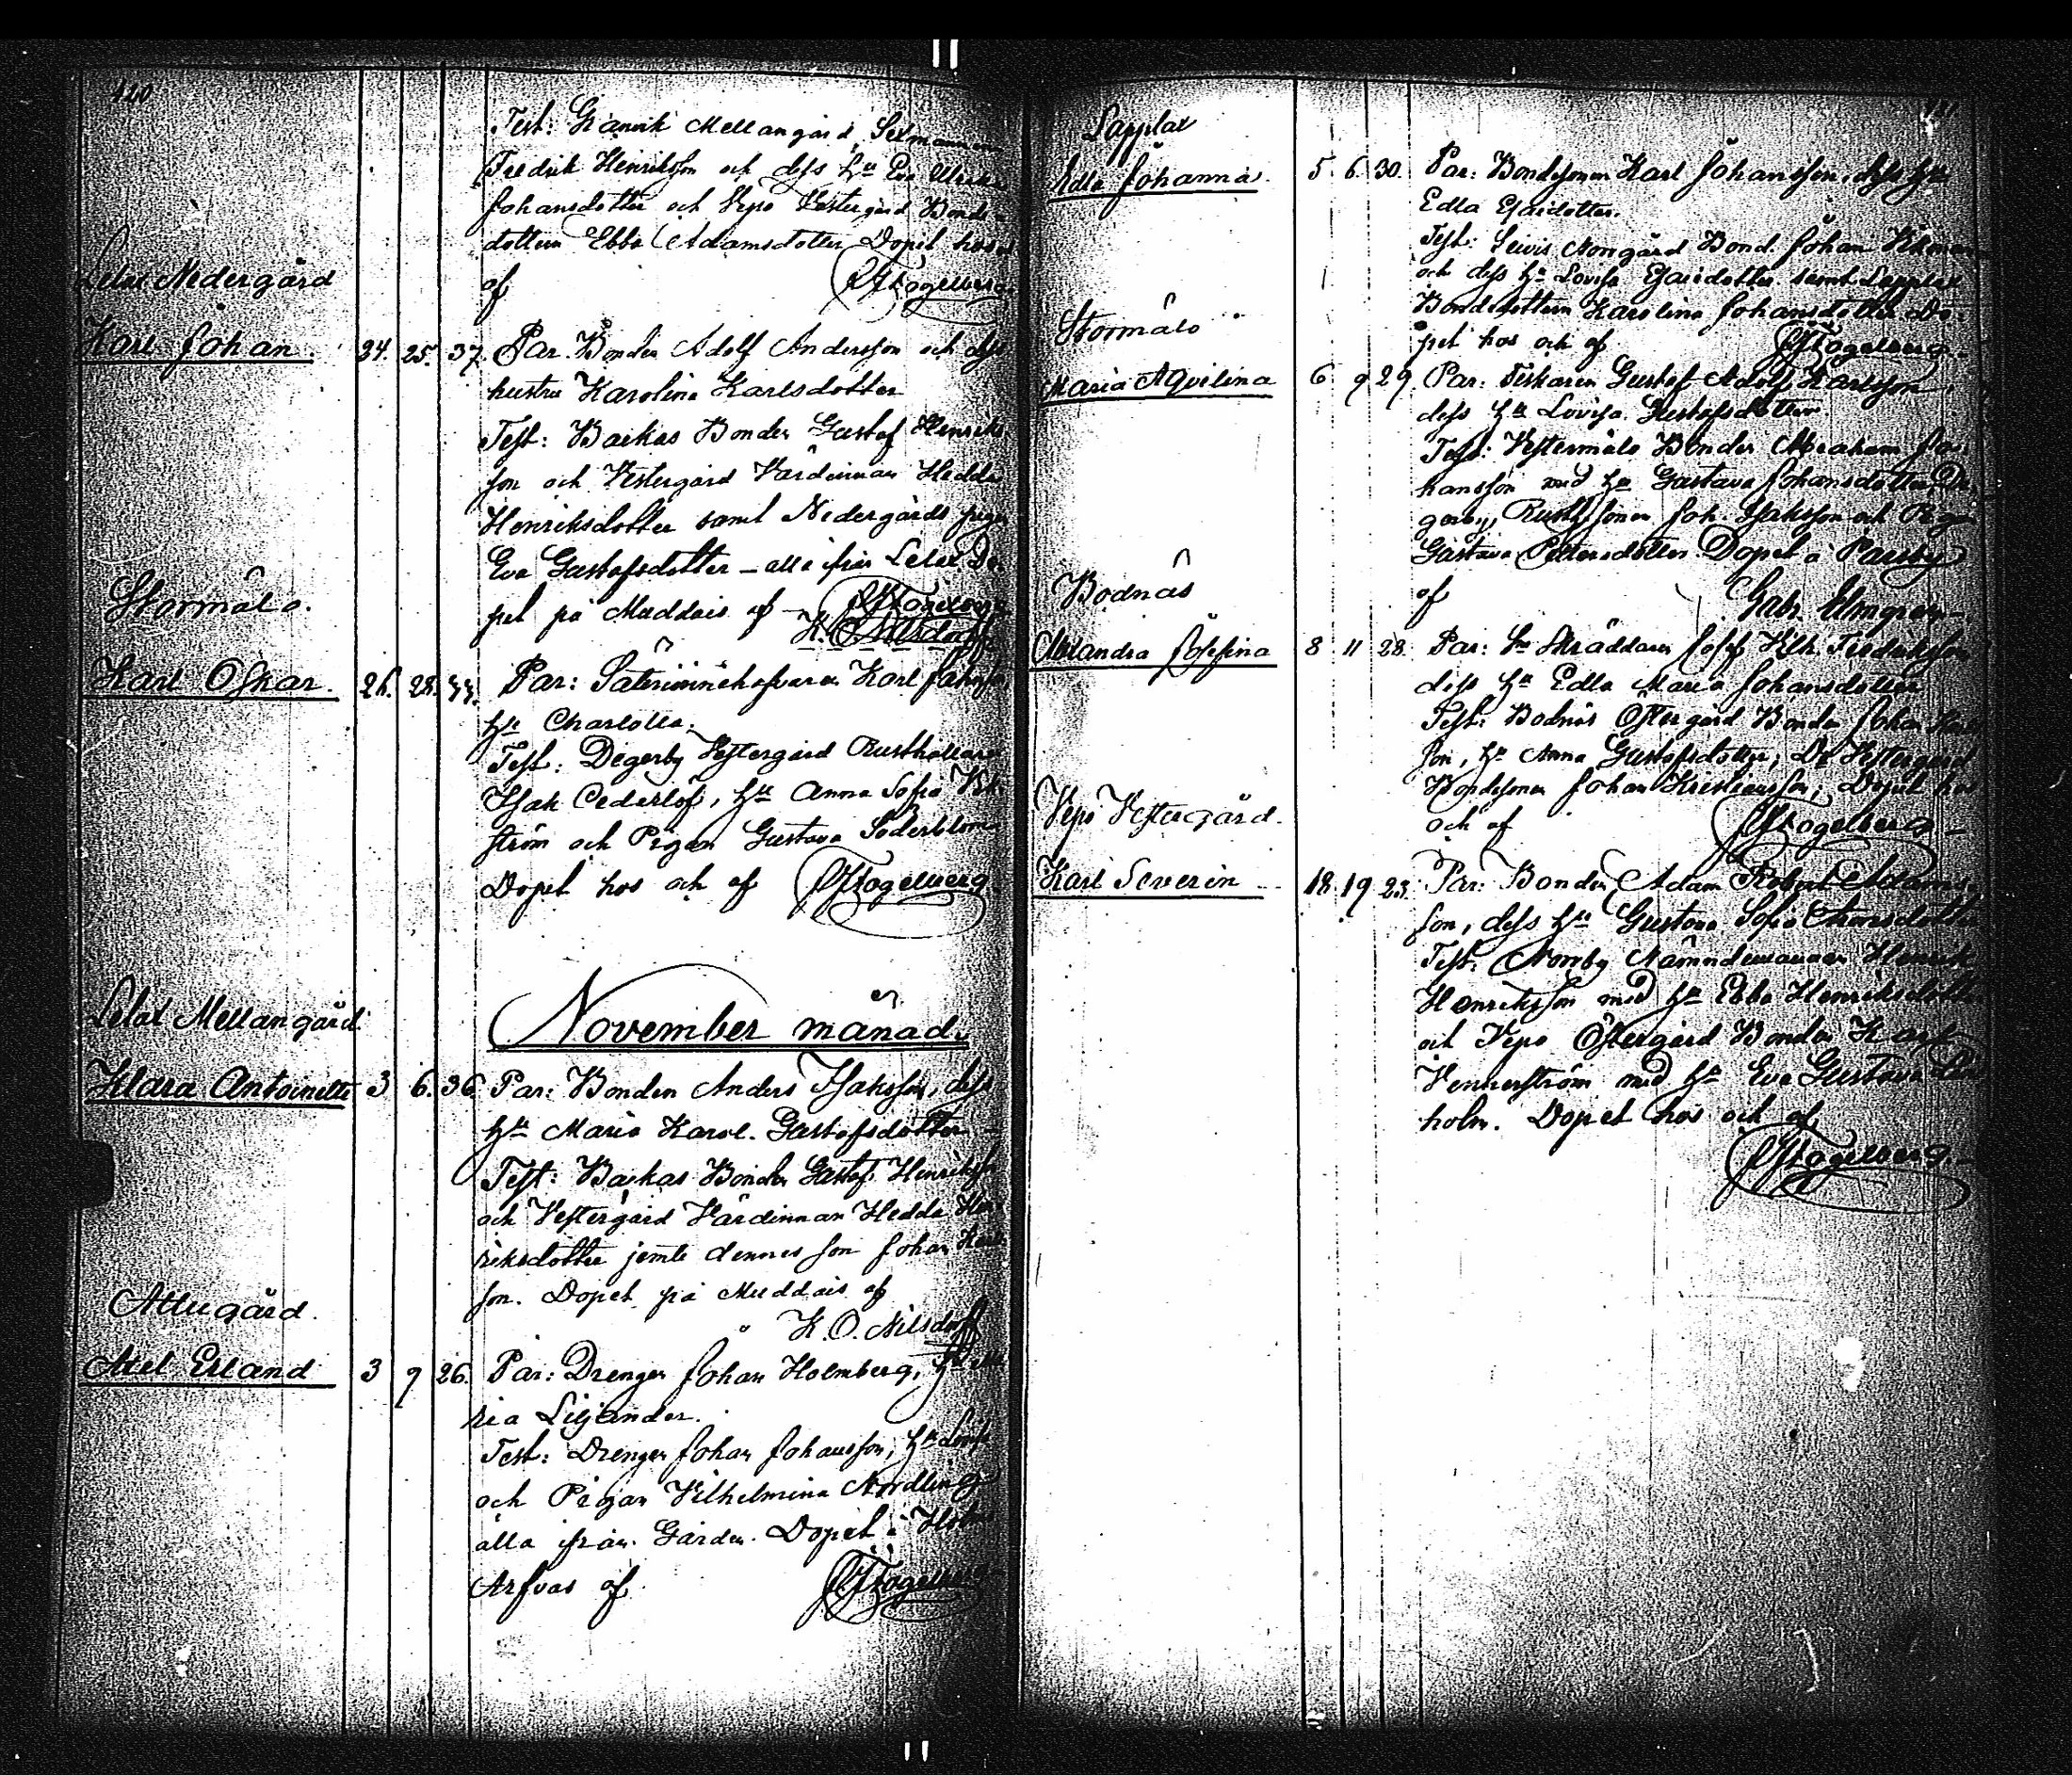 420
Test: Granvik Mellangård Sexmannen
Fredrik Henriksson och dess h:u Eva Ulrika
Johansdotter och Vepo Vestergård Bonde
dottern Ebba Adamsdotter Dopet hos
af
Lelax Nedergård
Karl Johan. 24. 25. 37. Par. Bonden Adolf Andersson och dess
hustru Karolina Karlsdotter
Test: Backas Bonden Gustaf Henriks
son och Vestergård Värdinnan Hedda
Henriksdotter samt Nedergårds pigan
Eva Gustafsdotter – alla ifrån Lelax Do-
pet på Muddais af
Stormälö.
K. O. Nilsdorff
Karl Oskar. 26. 28. 33. Par: Karl
h:u Charlotta.
Test: Degerby Vestergård Rusthållaren
Isak Cederlöf, h:u Anna Sofia Vik
ström och Pigan Gustava Söderblom
Dopet hos och af
November månad.
Lelax Mellangård
Klara Antoinette 3 6. 36 Par: Bonden Anders Isaksson, dess
h:u Maria Karol. Gustafsdotter
Test: Backas Bonden Gustaf Henriksson
och Vestergård Värdinnan Hedda Hen
riksdotter jemte dennes son Johan Karls
son. Dopet på Muddais af
K. O. Nilsdorff
Attugård.
Axel Erland 3 9 26. Par: Drengen Johan Holmberg, h:u Ma
ria Liljander.
Test: Drengen Johan Johansson, h:u Lovisa
och Pigan Vilhelmina Nordling
alla ifrån Gården. Dopet i
Arfvas af
Lapplax
Edla Johanna. 5. 6. 30. Par: Bondesonen Karl Johansson, dess h:u
Edla Esaidotter.
Test: Levis Norrgård Bond. Johan
och dess h:u Lovisa Esaidotter samt Lapplax
Bondedottern Karolina Johansdotter Do-
pet hos och af
Stormälö
Maria Aqvilina 6 9 29. Par: Fiskaren Gustaf Adolf Karlsson
dess h:u Lovisa Gustafsdotter
Test: Vestermälö Bonden Abraham Jo-
hansson med h:u Gustava Johansdotter, De-
gerby, Rusth. sonen Joh. Isaksson och Pigan
Gustava Petersdotter. Dopet å Pargby
af Gabr. Elmgren
Bodnäs
Alexandra Josefina 8 11 28. Par: Skräddaren Josef Vilh. Fredriksson
dess h:u Edla Maria Johansdotter
Test: Bodnäs Östergård Bonden Johan
son, h:u Anna Gustafsdotter, D:o Vestergård
Bondesonen Johan Kristiansson, Dopet hos
och af
Vepo Vestergård.
Karl Severin 18. 19 23. Par: Bonden Adam Robert Adams-
son, dess h:u Gustava Sofia
Test: Norrby Nämndemannen Henrik
Henriksson med h:u Ebba Henriksdotter
och Vepo Östergård Bonden Karl
Vennerström med h:u Eva Gustava
holm. Dopet hos och af